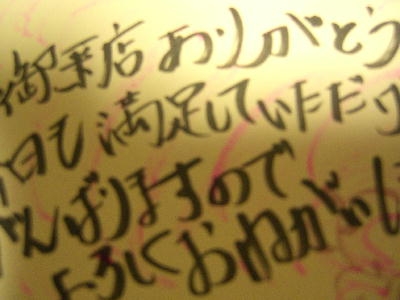 御来店ありがとう
今日も満足していただけ
がんばりますので
よろしくおねがいし